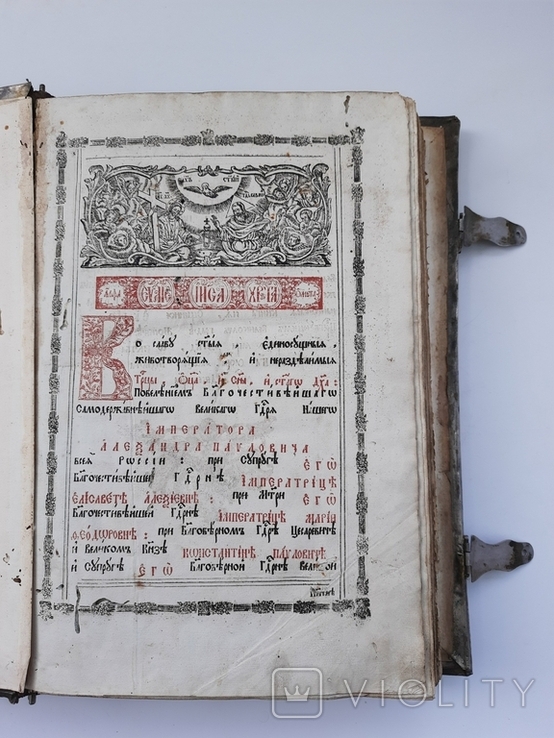 Во славу ст҃ы́ѧ, є҆диносꙋщныѧ,
животворѧщїѧ и нераздѣлимыѧ
Трⷪ҇цы, Ѻ҆ц҃а̀, и҆ Сн҃а, и҆ ст҃а́гѡ Дх҃а:
Повелѣнїемъ Бл҃гочестивѣ́йшагѡ
Самодержавнѣйшагѡ Великагѡ Гдⷭ҇рѧ Нашегѡ
І҆МПЕРАТОРА
АЛЕѮАНДРА ПАѴЛОВИЧА
всеѧ Рѡссїи: при Сꙋпрꙋгѣ Є҆ГѠ̀
Бл҃гочⷭ҇тивѣйшей Гдⷭ҇рнѣ І҆МПЕРАТРИЦѢ
Є҆ЛИСАВЕТѢ АЛЕѮІЕВНѢ: при Мт҃ри Є҆ГѠ̀
Бл҃гочⷭ҇тивѣйшей Гдⷭ҇рнѣ І҆МПЕРАТРИЦѢ МАРІИ
ѲЕѠДѠРОВНѢ: при Бл҃говѣрномъ Гдⷭ҇рѣ Цесаревичѣ
и҆ Великомъ Кнѧзѣ КѠНСТАНТІНѢ ПАѴЛОВИЧѢ
и҆ Сꙋпрꙋгѣ Є҆ГѠ̀ Бл҃говѣрной Гдⷭ҇рнѣ Великой
VIOLITY